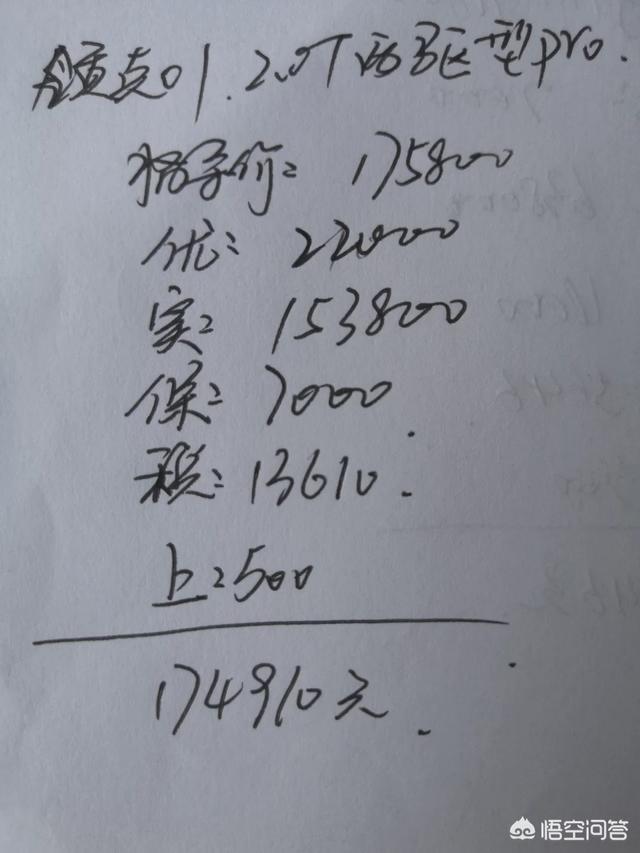 领克01.2.0T两驱型pro.
指导价: 175800
优: 22000
实: 153800
保: 7000.
税: 13610.
上: 500
174910元.
悟空问答